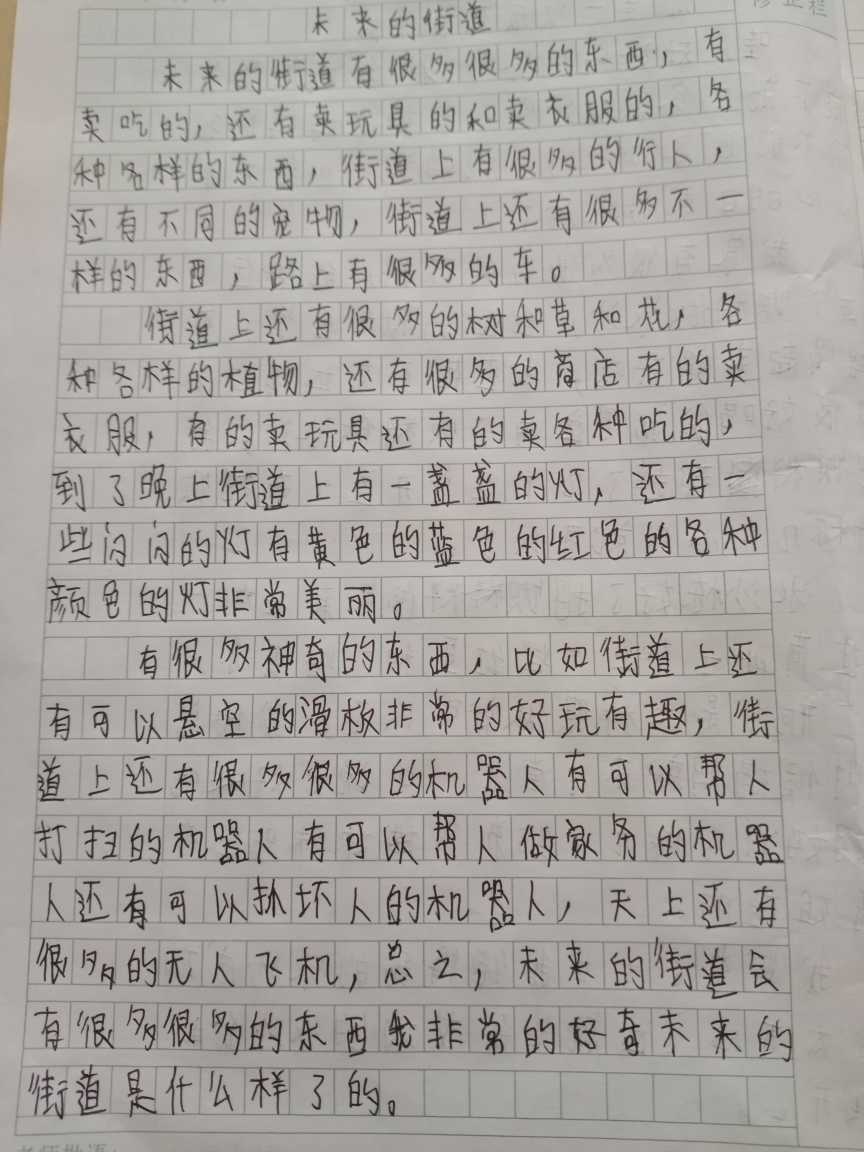 未来的街道
未来的街道有很多很多的东西，有
卖吃的，还有卖玩具的和卖衣服的，各
种各样的东西，街道上有很多的行人，
还有不同的宠物，街道上还有很多不一
样的东西，路上有很多的车。
街道上还有很多的树和草和花，各
种各样的植物，还有很多的商店有的卖
衣服，有的卖玩具还有的卖各种吃的，
到了晚上街道上有一盏盏的灯，还有一
些闪闪的灯有黄色的蓝色的红色的各种
颜色的灯非常美丽。
有很多神奇的东西，比如街道上还
有可以悬空的滑板非常的好玩有趣，街
道上还有很多很多的机器人有可以帮人
打扫的机器人有可以帮人做家务的机器
人还有可以抓坏人的机器人，天上还有
很多的无人飞机，总之，未来的街道会
有很多很多的东西我非常的好奇未来的
街道是什么样了的。